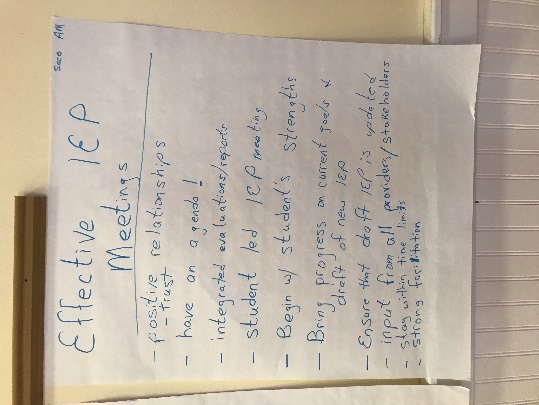 Saco AM
Effective IEP
Meetings
- positive relationships
- trust
- have an agenda!
- integrated evaluations/reports
- student led IEP meeting
- Begin w/ student's strengths
- Bring progress on current goals &
draft of new IEP
- Ensure that draft IEP is updated
- input from all providers/stakeholders
- Stay within time limits
- strong facilitation